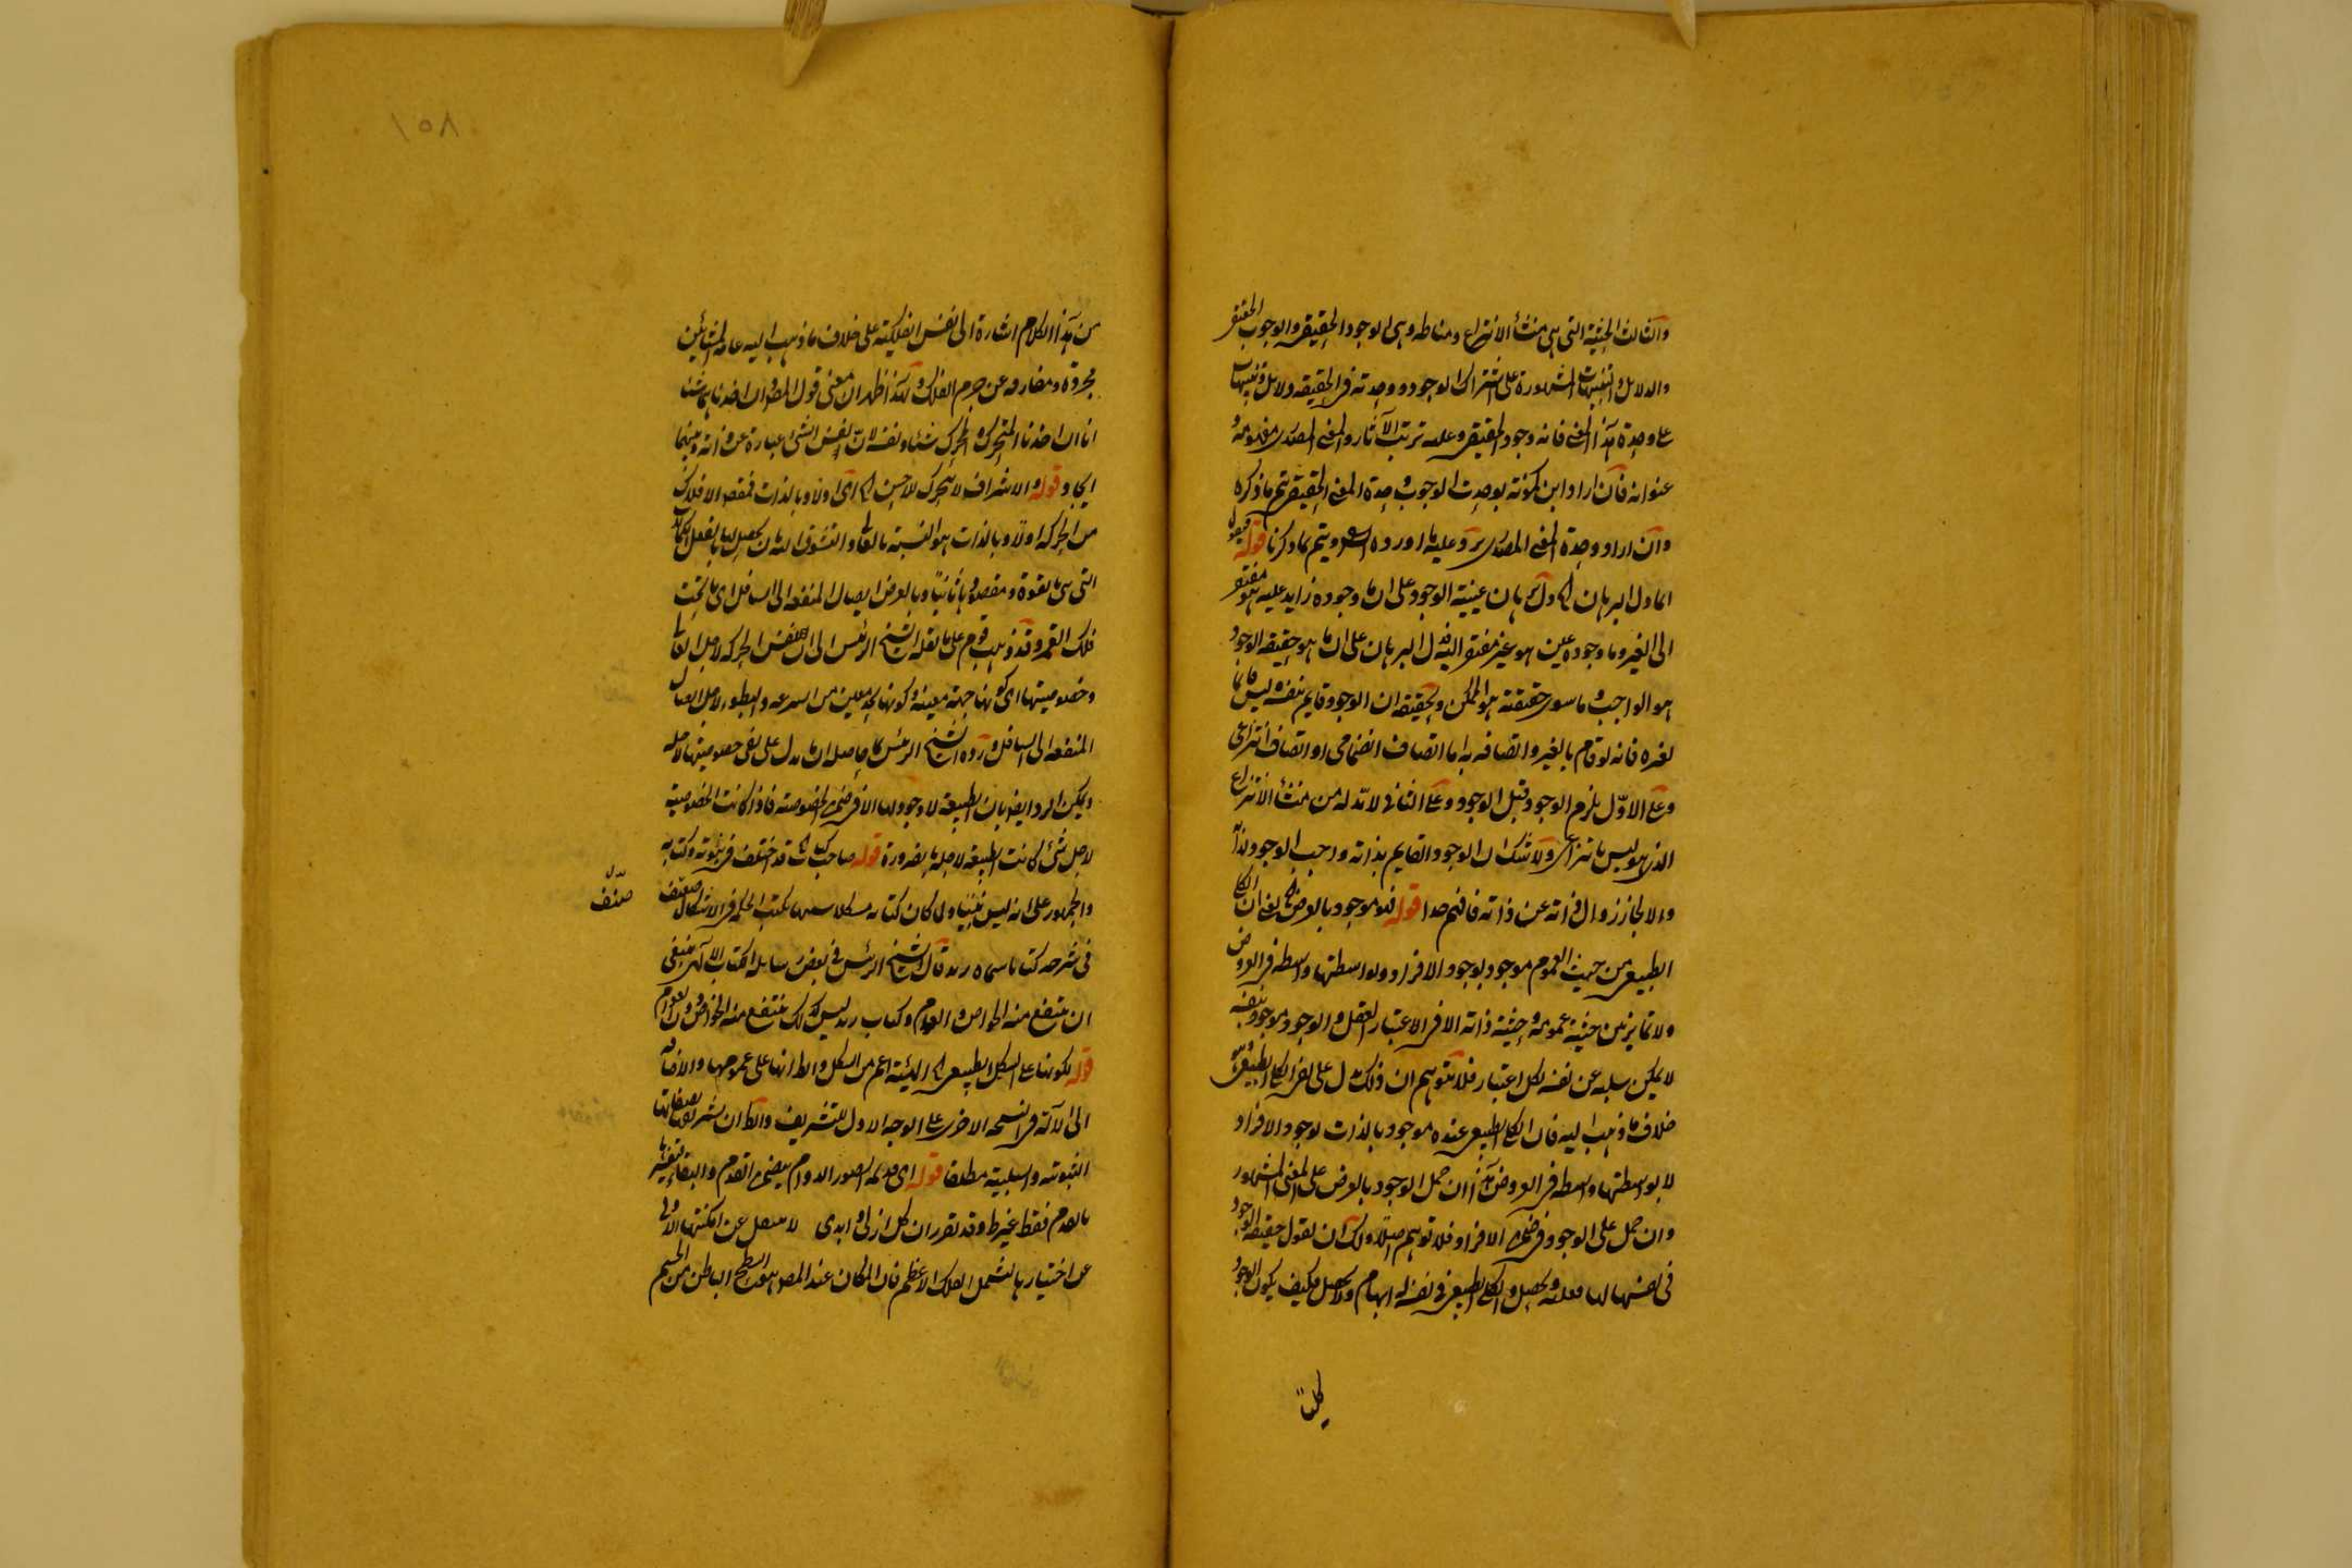 والثالث الحيثية التي هي منشأ الانتزاع ومناطه وهي الوجود الحقيقي والوجوب الحقيقي
والدلائل والتنبيهات المشهورة على اشتراك الوجود ووحدته في الحقيقة دلائل وتنبيهات
على وحدة هذا المعنى فانه وجود الحقيقي وعليه ترتب الآثار والمعنى المصدري مفهومه و
عنوانه فان اراد ابن كمونة بوحدة الوجوب وحدة المعنى الحقيقي يتم ما ذكره
وان اراد وحدة المعنى المصدري يرد عليه ما اورده ويتم بما ذكرنا قوله فيصير
اما دل البرهان دل برهان عينية الوجود على ان ما وجوده زايد عليه هو مفتقر
الى الغير وما وجوده عين هو غير مفتقر اليه دل البرهان على ان ما هو حقيقة الوجود
هو الواجب وما سوى حقيقته هو الممكن والحقيقة ان الوجود قايم بنفسه ليس قائما
لغيره فانه لو قام بالغير واتصافه به اما اتصاف انضمامي او اتصاف انتزاعي
وعلى الاول يلزم الوجود قبل الوجود وعلى الثاني لا بد له من منشأ الانتزاع
الذي هو ليس بانتزاعي ولا شك ان الوجود القايم بذاته واجب الوجود لذاته
والا لجاز زوال ذاته عن ذاته فافهم جدا قوله فهو موجود بالعرض يعني ان الكلي
الطبيعي من حيث العموم موجود بوجود الافراد وبواسطتها واسطة في العروض
ولا تمايز بين حيثية عمومه وحيثية ذاته الا في الاعتبار العقل والوجود موجود بنفسه
لا يمكن سلبه عن نفسه بكل اعتبار فلا يتوهم ان ذلك يدل على نفي الكلي الطبيعي وهو
خلاف ما ذهب اليه فان الكلي الطبيعي عنده موجود بالذات لوجود الافراد
لا بواسطتها واسطة في العروض هذا ان حمل الوجود بالعرض على المعنى المشهور
وان حمل على الوجود في ضمن الافراد فلا توهم اصلا ولك ان تقول حقيقة الوجود
في نفسها لها فعلية وتحصل والكلي الطبيعي في نفسه له ابهام ولا تحصل فكيف يكون الوجود
كليا
١٥٨
من هذا الكلام اشارة الى نفس الفلكية على خلاف ما ذهب اليه عامة المشائين
مجردة ومفارقة عن جرم الفلك وبهذا ظهر ان معنى قول المص وان اخذناهما شيئا
انا ان اخذنا المتحرك والمحرك شيئا ونفسه لان نفس الشيء عبارة عن ذاته وبينهما
ايجاد قوله والاشراف لا يتحرك للاخس اي اولا وبالذات فمقصد الافلاك
من الحركة اولا وبالذات هو التشبه بالعالي والتشوق اليه بان يحصل لها بالفعل الكمالات
التي هي بالقوة ومقصدها ثانيا وبالعرض ايصال المنفعة الى السافل اي ما تحت
فلك القمر وقد ذهب قوم على ما نقله الشيخ الرئيس الى ان نفس الحركة لاجل العالي
وخصوصيتها اي كونها جهة معينة وكونها بحد معين من السرعة والبطوء لاجل ايصال
المنفعة الى السافل ورده الشيخ الرئيس بما حاصله ان ما يدل على نفي خصوصيتها لاجله
ويمكن الرد ايضا بان الطبيعة لا وجود لها الا في ضمن الخصوصية فاذا كانت الخصوصية
لاجل شيء كانت الطبيعة لاجله بالضرورة قوله صاحب كتاب قد اختلف في نبوته وكتابه
والجمهور على انه ليس نبيا ولما كان كتابه مشكلا بكتب الحكمة في الاشكال صنف
صنف
في شرحه كتابا سماه زند قال الشيخ الرئيس في بعض رسايله الكتاب الالهي ينبغي
ان ينتفع منه الخواص والعوام وكتاب زند ليس كذلك ينتفع منه الخواص دون العوام
قوله لكونها على الشكل الطبيعي الهيئة اعم من الشكل واطلاقها على عمومها والاضافة
الى الآلة في النسخة الاخرى على الوجه الاول للتشريف والظ ان يشير بصفاتها
الثبوتية والسلبية مطلقا قوله اي قديمة الصور الدوام يتضمن القدم والبقاء فتفسيرها
بالقدم فقط غير ظ وقد تقرر ان كل ازلي ابدي لا تنتقل عن امكنتها الاولى
عن اختيارها يشمل الفلك الاعظم فان المكان عند المص هو السطح الباطن من الجسم